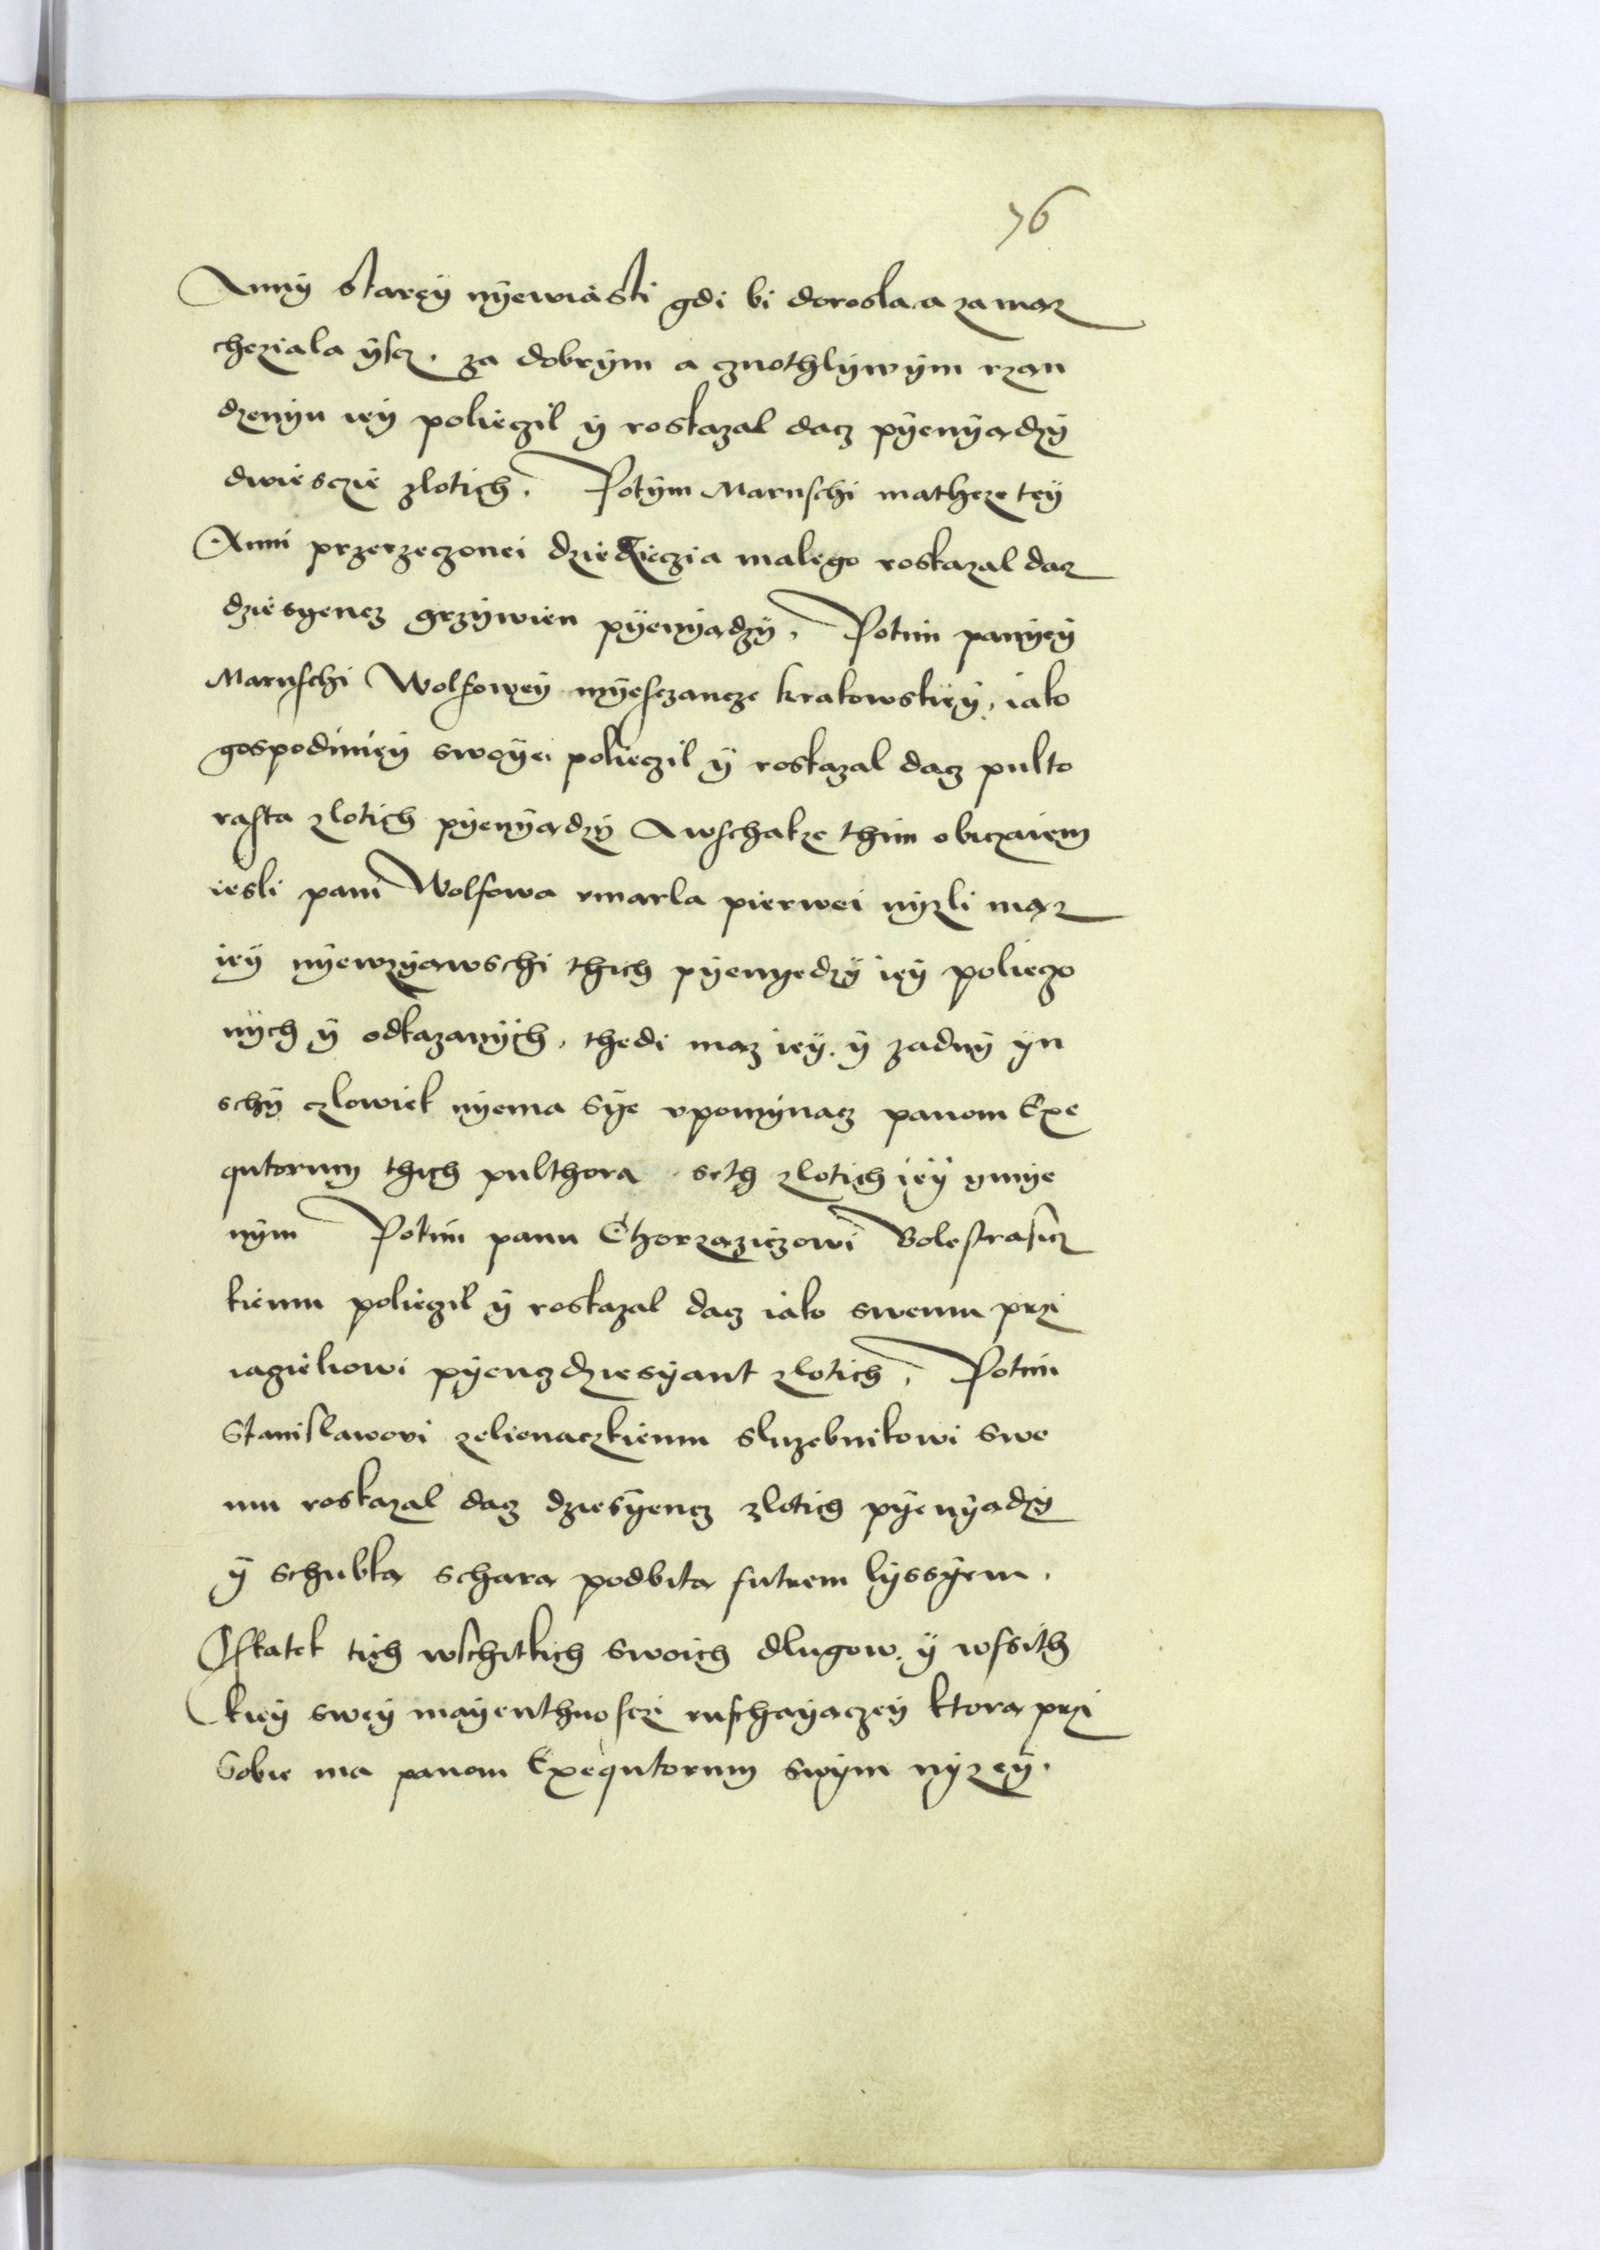 76
Anny starey nÿewiasti gdi bi dorosla a za mąz
chcziala ÿscz . za dobrÿm a cznothlÿwÿm rzan
dzenÿu ieÿ polieczil ÿ roskazal dacz pÿenÿądzÿ
dwiesczie zlotich. Potÿm Maruschi matheze teÿ
Anni przerzeczonei dziedzieczia malego roskazal dac
dziesyencz grzÿwien pÿenÿądzÿ. Potim panÿeÿ
Maruschi Wolfoweÿ mÿesczancze krakowskieÿ, iako
gospodinieÿ swoÿei polieczil ÿ roskazal dacz pulto
rasta zlotich pÿenÿądzÿ Awschakze thim obiczaiem
iesli pani Wolfowa vmarla pierwei nÿzli mąz
ieÿ nÿewzÿąwschi thich pÿenyedzÿ ieÿ poliego
nÿch ÿ odkazanÿch, thedi maz ieÿ. ÿ zadnÿ ÿn
schÿ czlowiek nÿema sÿe vpomÿnacz panom Exe
qutorum thich pulthora seth zlotich ieÿ ymÿe
nÿm Potim panu Chorzaziczowi Bolestrasicz
kiemu polieczil ÿ roskazal dacz iako swemu przi
iacieliowi pÿenczdziesÿant zlotich. Potim
Stanislawovi zelienaczkiemu sluzebnikowi swe
mu roskazal dacz dziesÿencz zlotich pÿenÿądzÿ
ÿ schubką scharą podbitą futrem lÿssÿem.
Ostatek tich wschitkich swoich dlugow. ÿ wssith
kieÿ sweÿ maÿenthnosczi ruschaÿączeÿ ktorą przi
sobie ma panom Exequtorum swÿm nÿzeÿ.